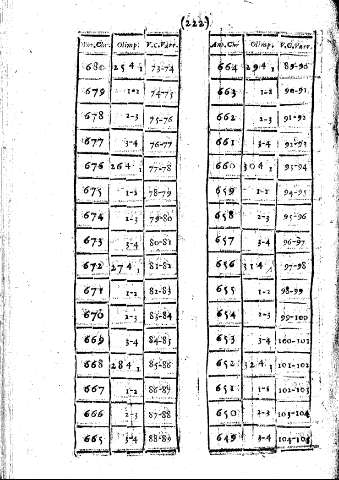 (222)
An.Chr. Olimp. V.C.Varr.
680 25 4,1 73-74
679 1-2 74-75
678 2-3 75-76
677 3-4 76-77
676 26 4,1 77-78
675 1-2 78-79
674 2-3 79-80
673 3-4 80-81
672 27 4,1 81-82
671 1-2 82-83
670 2-3 83-84
669 3-4 84-85
668 28 4,1 85-86
667 1-2 86-87
666 2-3 87-88
665 3-4 88-89
An.Chr. Olimp. V.C.Varr.
664 29 4,1 89-90
663 1-2 90-91
662 2-3 91-92
661 3-4 92-93
660 30 4,1 93-94
659 1-2 94-95
658 2-3 95-96
657 3-4 96-97
656 31 4,1 97-98
655 1-2 98-99
654 2-3 99-100
653 3-4 100-101
652 32 4,1 101-102
651 1-2 102-103
650 2-3 103-104
649 3-4 104-105